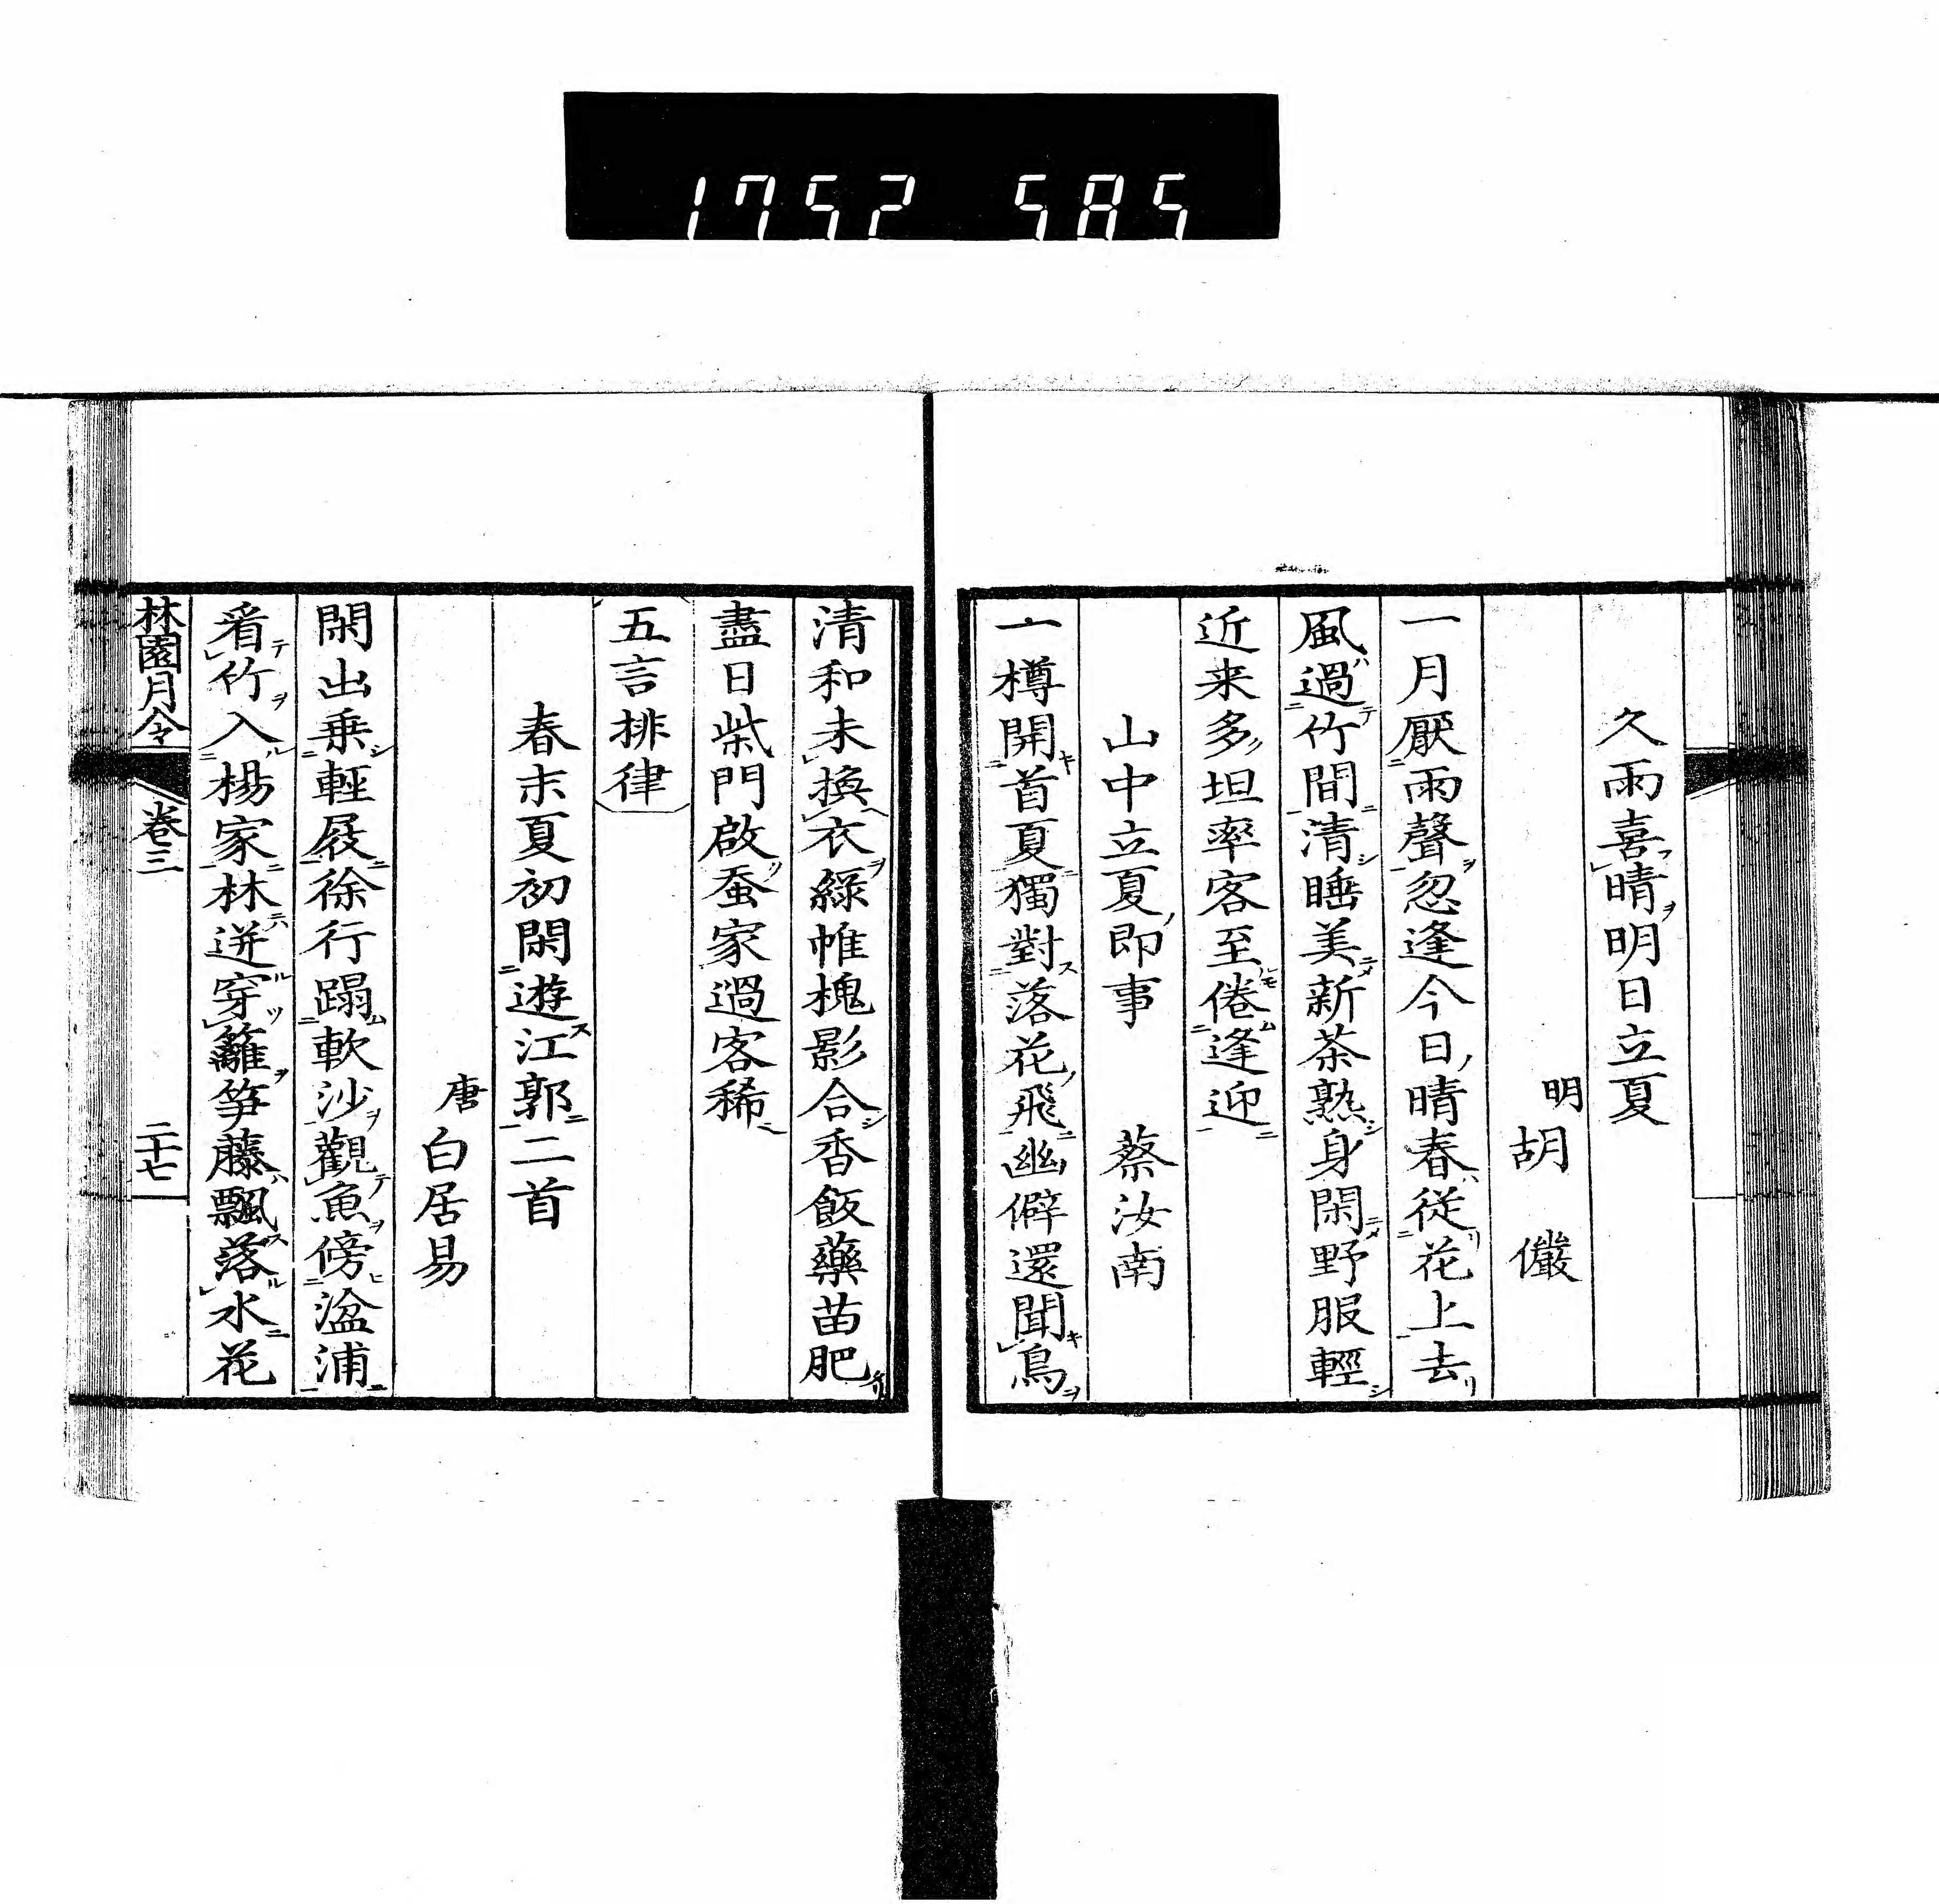 1752 585
久雨喜晴明日立夏
明胡儼
一月厭雨聲忽逢今日晴春從花上去
風過竹間清睡美新茶熟身閑野服輕
近来多坦率客至倦逢迎
山中立夏即事 蔡汝南
一樽開首夏獨對落花飛幽僻還聞鳥
清和未換衣綠帷槐影合香飯藥苗肥
盡日柴門啟蚕家過客稀
五言排律
春末夏初閑遊江郭二首
唐白居易
閑出乗輕屐徐行蹋軟沙觀魚傍湓浦
看竹入楊家林迸穿籬笋藤飄落水花
林園月令 卷三 二十七